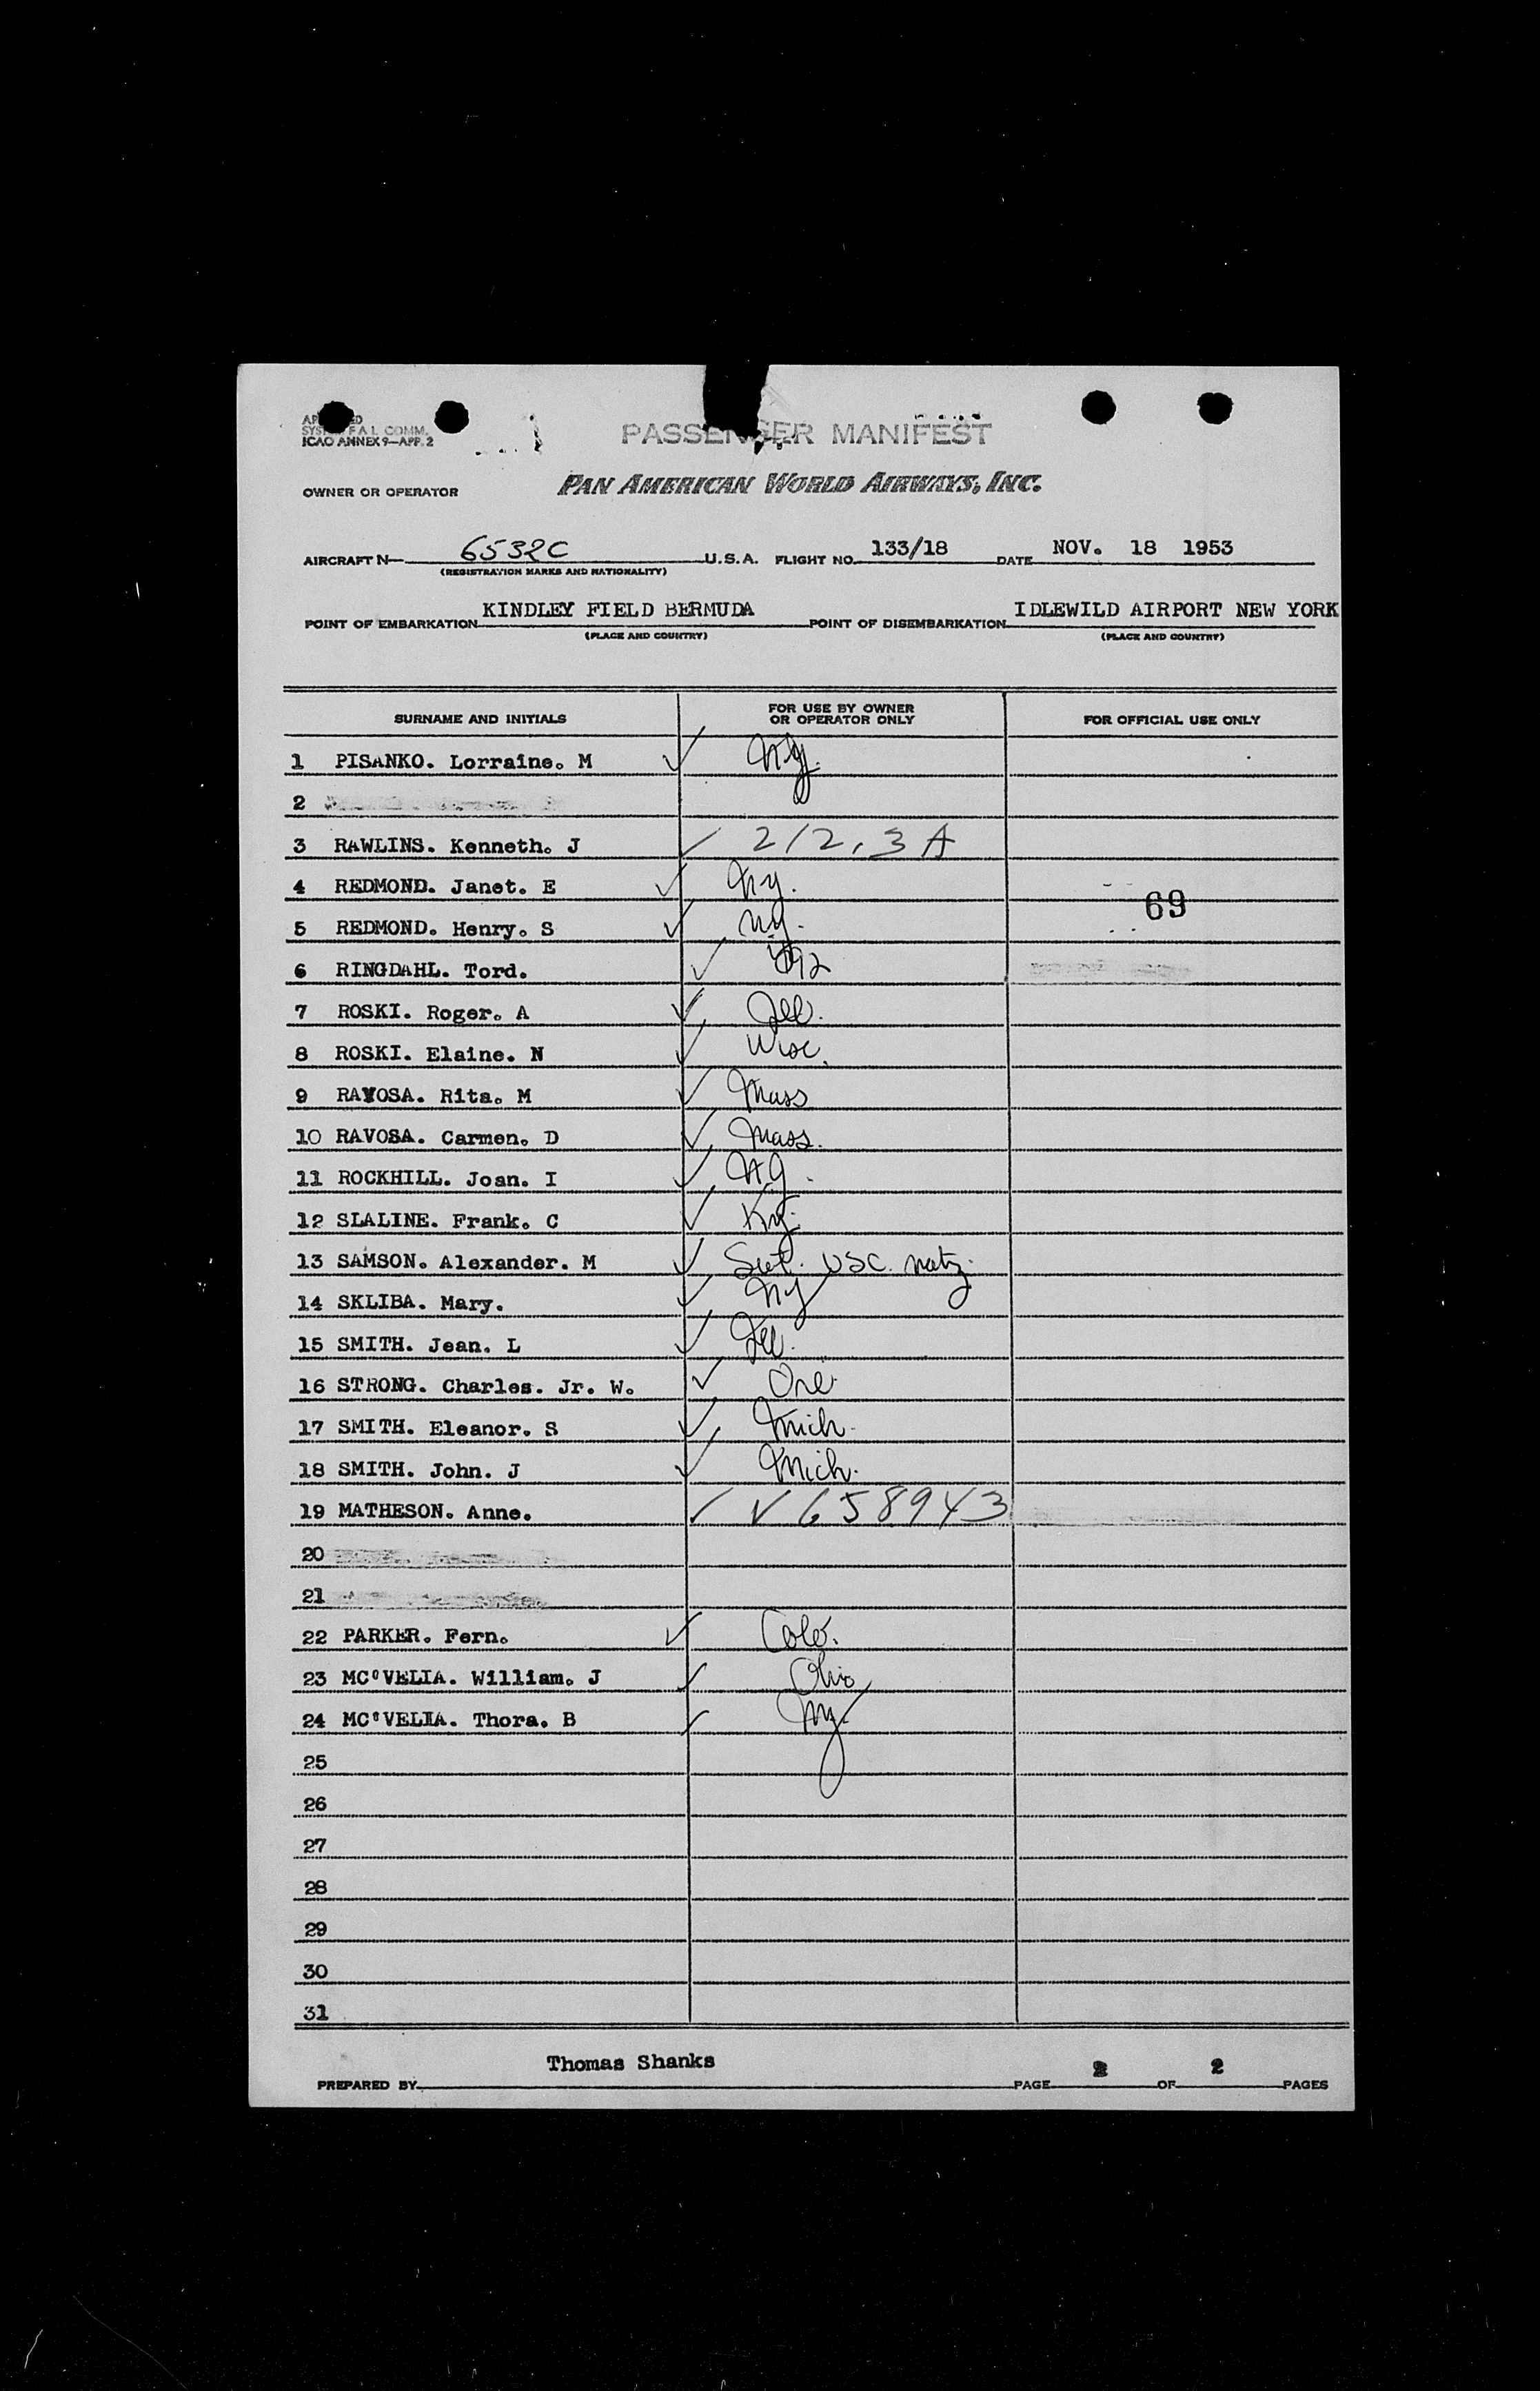 ICAO ANNEX 9—APP. 2
PASSENGER MANIFEST
OWNER OR OPERATOR PAN AMERICAN WORLD AIRWAYS, INC.
AIRCRAFT N— 6532C U.S.A. FLIGHT NO. 133/18 DATE NOV. 18 1953
(REGISTRATION MARKS AND NATIONALITY)
POINT OF EMBARKATION KINDLEY FIELD BERMUDA POINT OF DISEMBARKATION IDLEWILD AIRPORT NEW YORK
(PLACE AND COUNTRY) (PLACE AND COUNTRY)
SURNAME AND INITIALS FOR USE BY OWNER OR OPERATOR ONLY FOR OFFICIAL USE ONLY
1 PISANKO. Lorraine. M ✓ NY.
2
3 RAWLINS. Kenneth. J ✓ 212.3A
4 REDMOND. Janet. E ✓ NY.
69
5 REDMOND. Henry. S ✓ NY.
6 RINGDAHL. Tord. ✓
7 ROSKI. Roger. A ✓ Ill.
8 ROSKI. Elaine. N ✓ Wisc.
9 RAVOSA. Rita. M ✓ Mass
10 RAVOSA. Carmen. D ✓ Mass.
11 ROCKHILL. Joan. I ✓
12 SLALINE. Frank. C ✓ Ky.
13 SAMSON. Alexander. M ✓ USC. natz.
14 SKLIBA. Mary. ✓ NY
15 SMITH. Jean. L ✓ Ill.
16 STRONG. Charles. Jr. W. ✓ Ore.
17 SMITH. Eleanor. S ✓ Mich.
18 SMITH. John. J ✓ Mich.
19 MATHESON. Anne. ✓ V 658943
20
21
22 PARKER. Fern. ✓ Colo.
23 MC'VELIA. William. J ✓ Ohio
24 MC'VELIA. Thora. B ✓ NY.
25
26
27
28
29
30
31
PREPARED BY Thomas Shanks PAGE 2 OF 2 PAGES